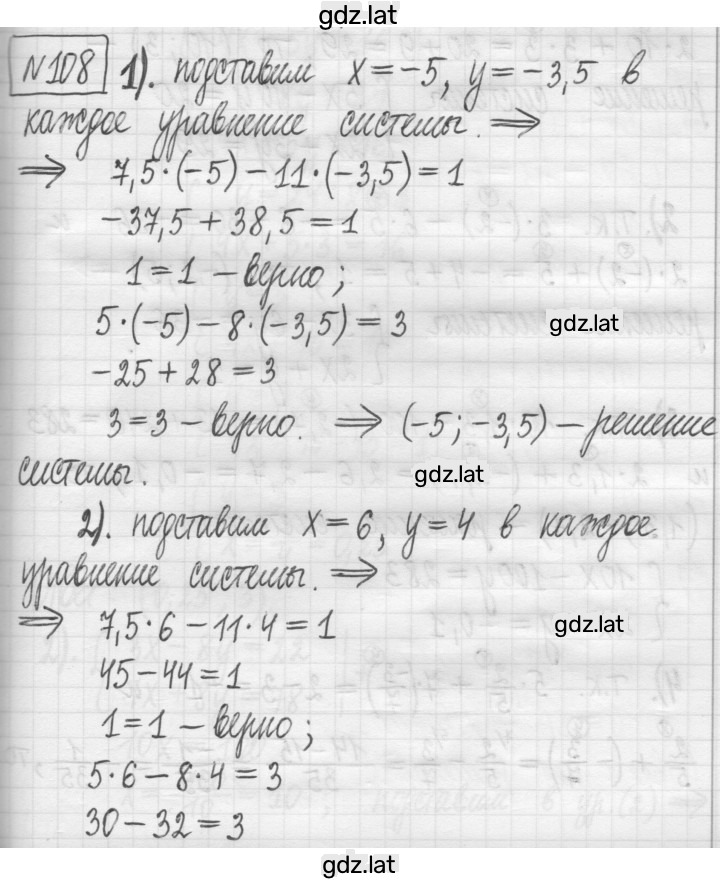 gdz.lat
№108 1). подставим x=-5, y=-3,5 в
каждое уравнение системы. ⇒
⇒ 7,5·(-5)-11·(-3,5)=1
-37,5+38,5=1
1=1 - верно;
5·(-5)-8·(-3,5)=3
gdz.lat
-25+28=3
3=3 - верно. ⇒ (-5;-3,5) - решение
системы.
gdz.lat
2). подставим x=6, y=4 в каждое
уравнение системы. ⇒
⇒ 7,5·6-11·4=1
gdz.lat
45-44=1
1=1 - верно;
5·6-8·4=3
30-32=3
gdz.lat